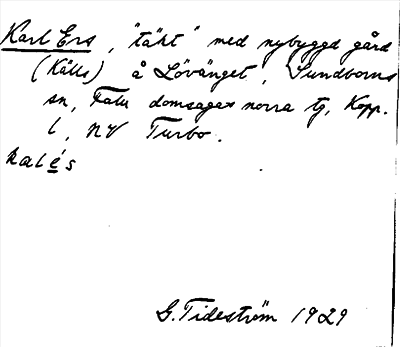 Karl Ers, "täkt" med nybyggd gård
(Källs) å Lövänget, Sundborns
sn, Falu domsagas norra tg, Kopp.
l, NV Turbo.
kalés
G. Tideström 1929